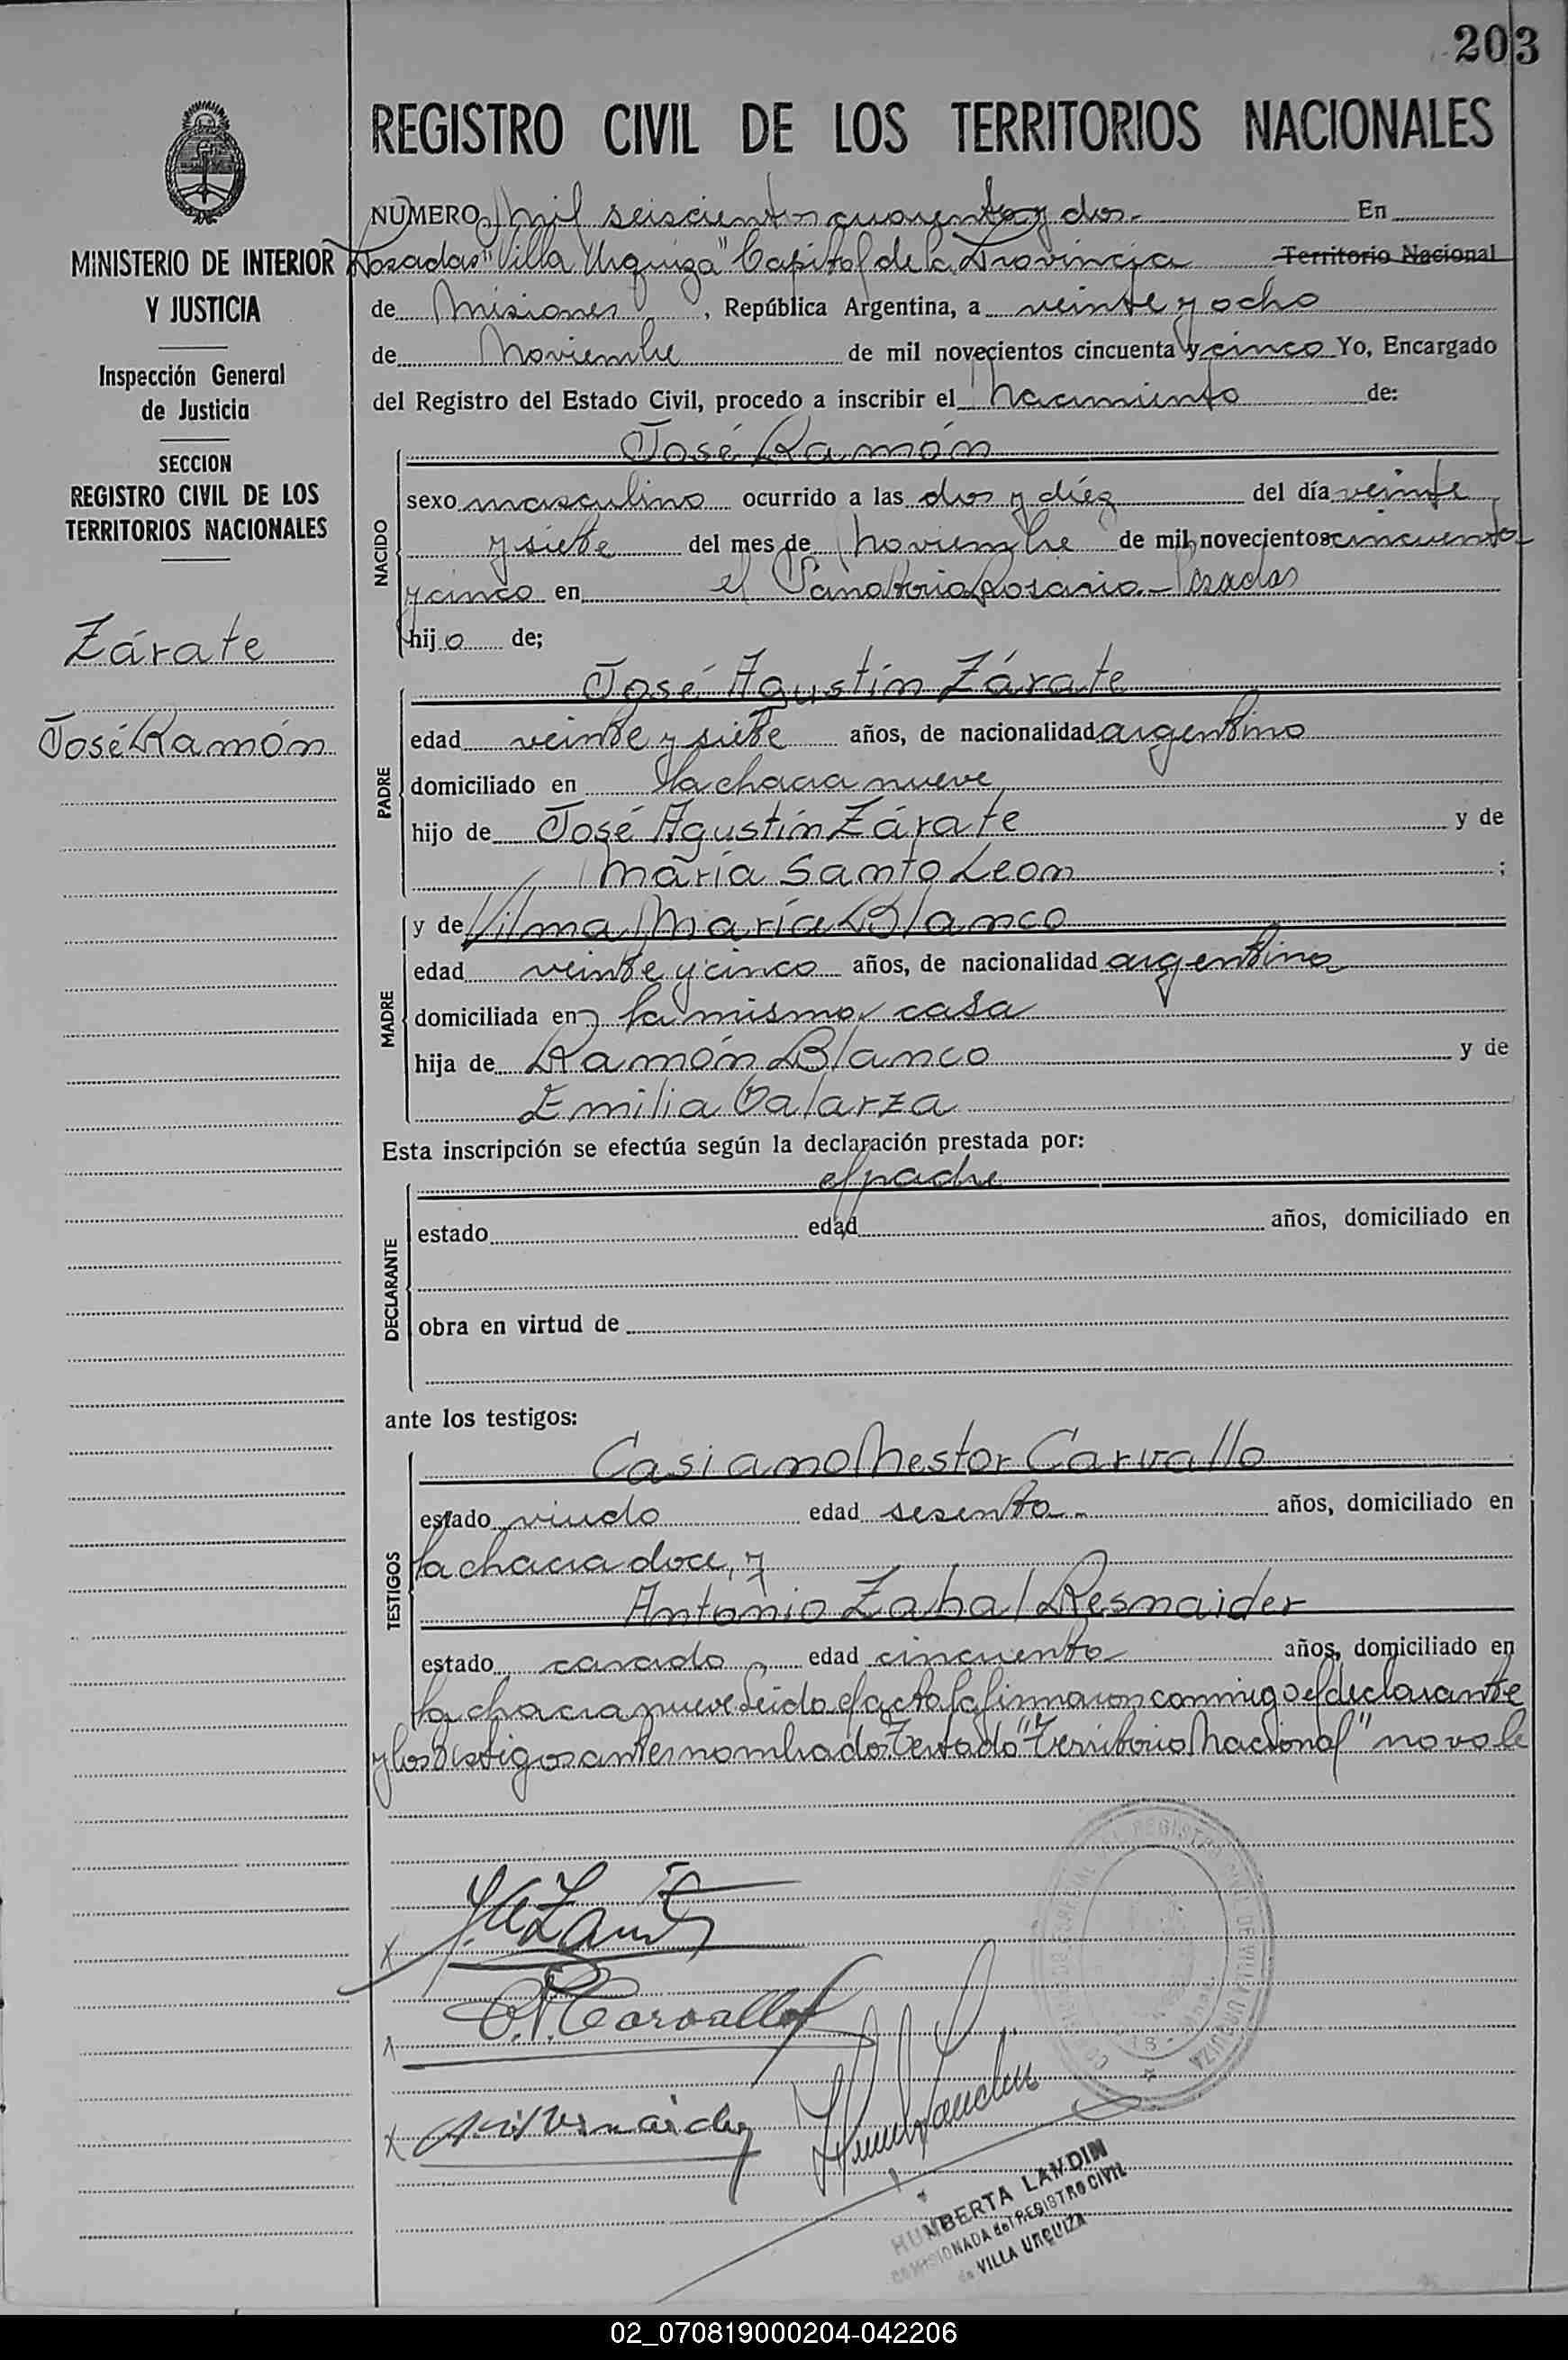 203
REGISTRO CIVIL DE LOS TERRITORIOS NACIONALES
MINISTERIO DE INTERIOR
Y JUSTICIA
Inspección General
de Justicia
SECCION
REGISTRO CIVIL DE LOS
TERRITORIOS NACIONALES
Zárate
José Ramón
NUMERO mil seiscientos cuarenta y dos.- En
Posadas "Villa Urquiza" Capital de la Provincia Territorio Nacional
de Misiones, República Argentina, a veinte y ocho
de Noviembre de mil novecientos cincuenta y cinco Yo, Encargado
del Registro del Estado Civil, procedo a inscribir el Nacimiento de:
NACIDO
José Ramón
sexo masculino ocurrido a las dos y diez del día veinte
y siete del mes de Noviembre de mil novecientos cincuenta
y cinco en el Sanatorio Rosario.- Posadas
hijo de;
PADRE
José Agustín Zárate
edad veinte y siete años, de nacionalidad argentino
domiciliado en la chacra nueve
hijo de José Agustín Zárate y de
María Santo Leon ;
MADRE
y de Vilma María Blanco
edad veinte y cinco años, de nacionalidad argentina
domiciliada en la misma casa
hija de Ramón Blanco y de
Emilia Galarza
Esta inscripción se efectúa según la declaración prestada por:
DECLARANTE
el padre
estado edad años, domiciliado en
obra en virtud de
ante los testigos:
TESTIGOS
Casiano Nestor Carvallo
estado viudo edad sesenta.- años, domiciliado en
la chacra doce, y
Antonio Zabal Resnaider
estado casado, edad cincuenta años, domiciliado en
la chacra nueve. Leido el acta la firmaron conmigo el declarante
y los testigos antes nombrados. Testado "Territorio Nacional" no vale
C.N. Carvallo
DEL REGISTRO CIVIL DE VILLA URQUIZA
HUMBERTA LANDIN
COMISIONADA del REGISTRO CIVIL
de VILLA URQUIZA
02_070819000204-042206